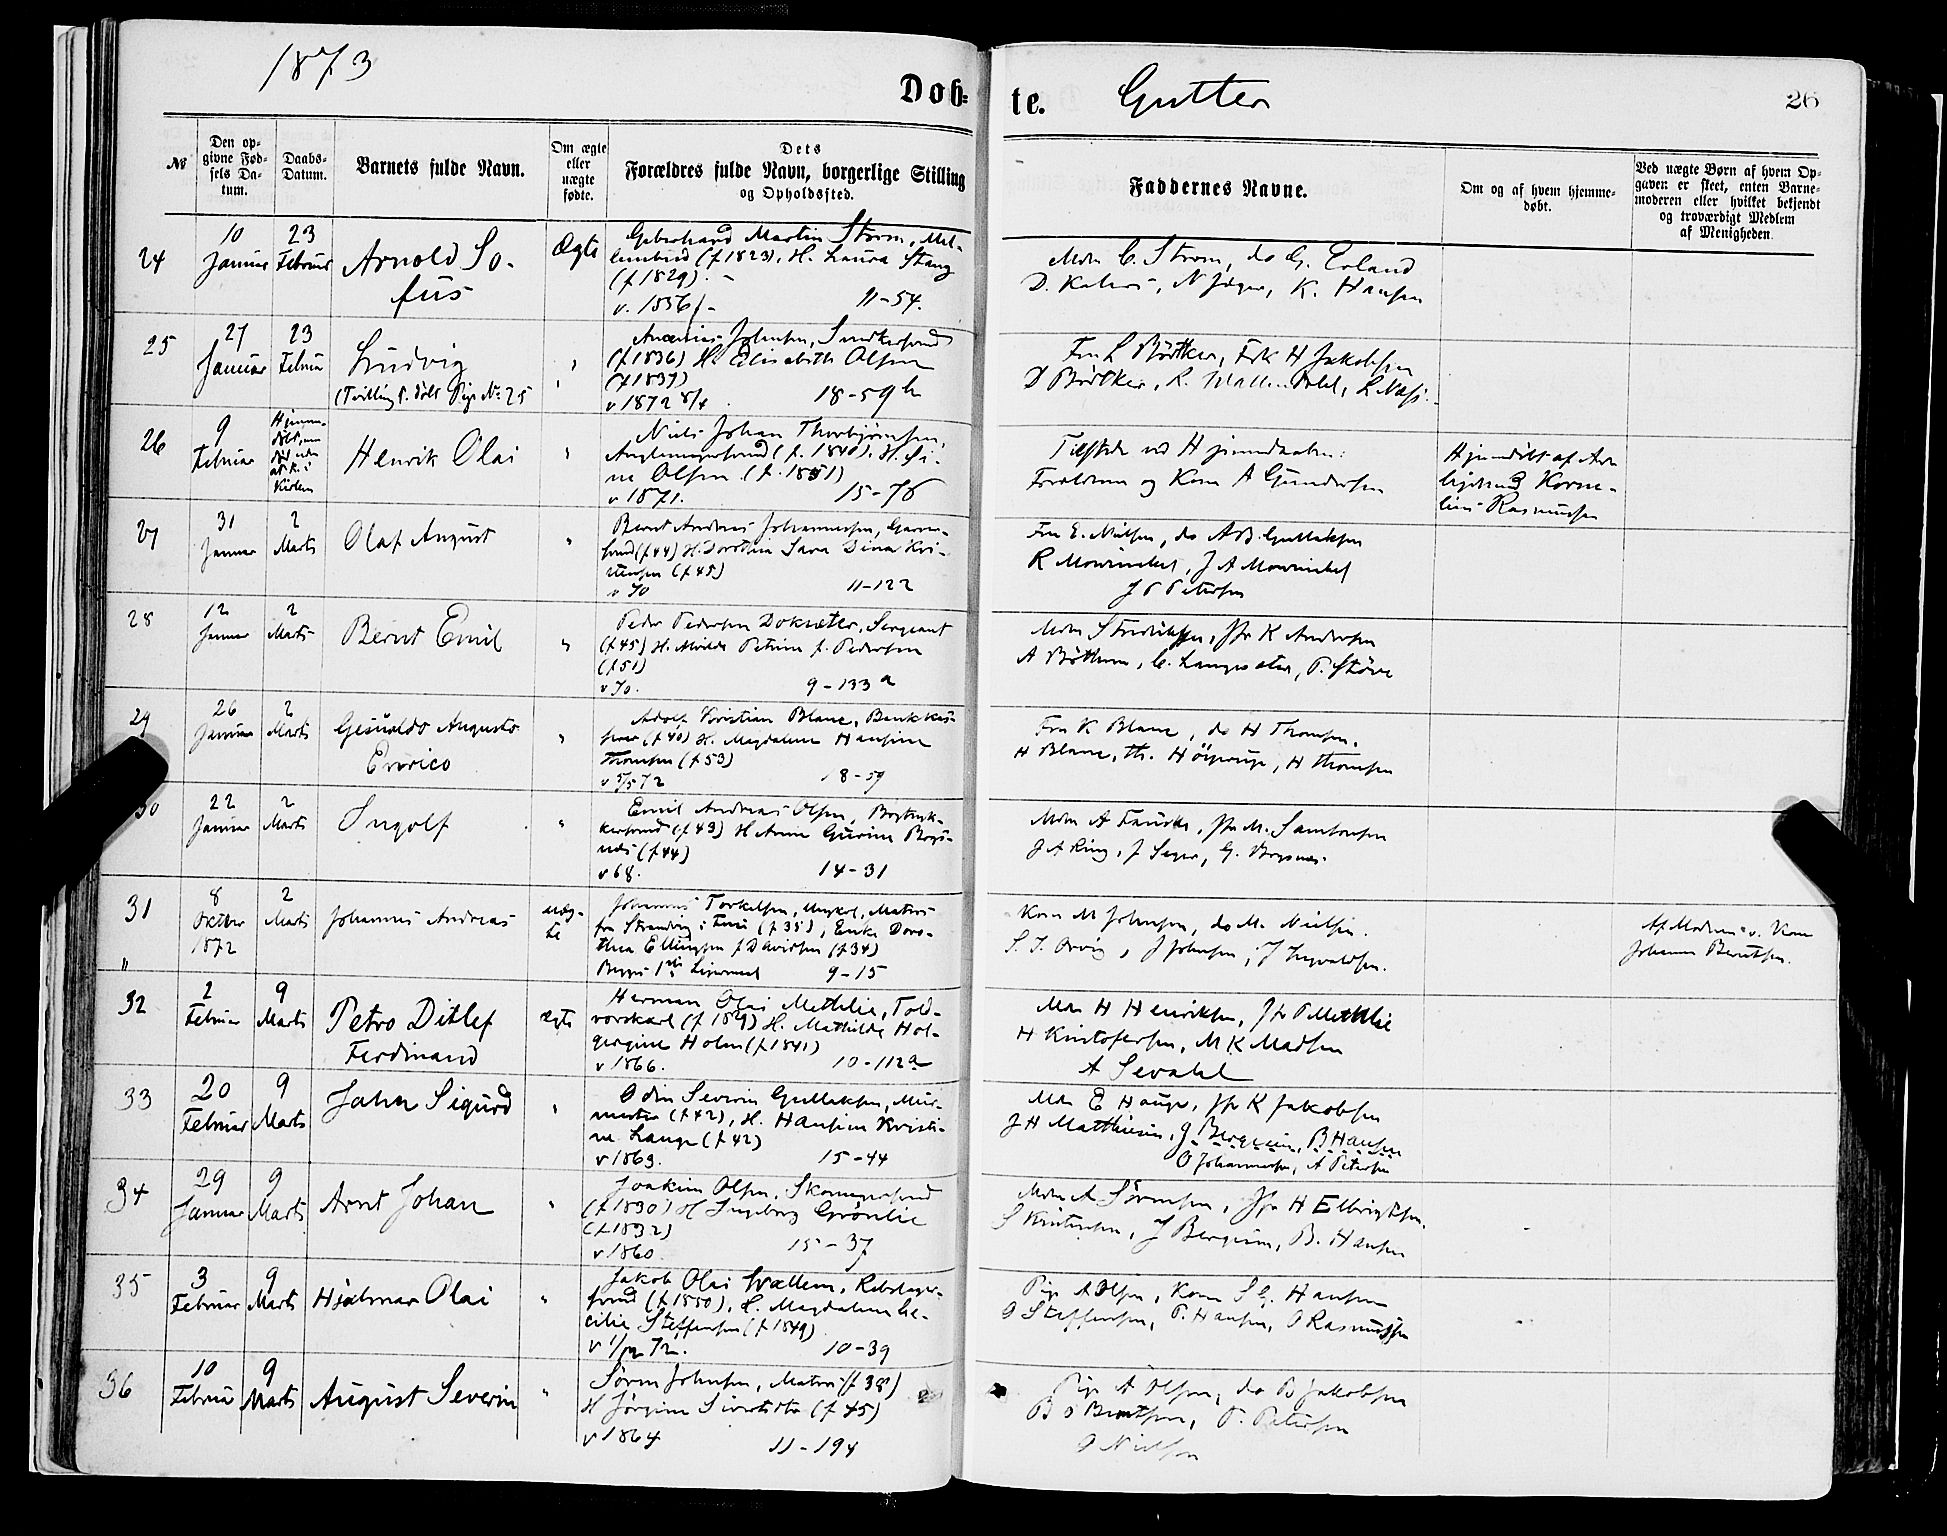 1873
Døb=
te. Gutter
26
№
Den op-
givne Fød-
sels Da-
tum.
Daabs-
Datum.
Barnets fulde Navn.
Om ægte
eller
uægte
fødte.
Dets
Forældres fulde Navn, borgerlige Stilling
og Opholdssted.
Faddernes Navne.
Om og af hvem hjemme-
døbt.
Ved uægte Børn af hvem Op-
gaven er skeet, enten Barne-
moderen eller hvilket bekjendt
og troværdigt Medlem
af Menigheden.
24
10
Januar
23
Februar
Arnold So-
fus
Ægte
Martin Strøm,
(f 1823), H. Laura Stang
(f 1829)
v. 1856
11-54.
C. Strøm, do G. Erland
K. Hansen
25
27
Januar
23
Februar
Ludvig
(Tvilling t. døbt Pige No 25
"
Johnsen,
(f 1836) H. Elisabeth Olsen
(f 1837)
v 1872
18-59 b
Fru L Bödtker, Frk H Jakobsen
D Bödtker,
26
9
Februar
Hjemme-
døbt,
Kirken
Henrik Olai
"
Niels Johan Thorbjörnsen,
(f. 1840), H. Si-
ne Olsen (f. 1851)
v 1871.
15-78
Tilstede ved Hjemmedaaben:
Forældrene og Kone A Gundersen
Hjemdöbt af
Korne-
lius Rasmussen
27
31
Januar
2
Marts
Olaf August
"
Bernt Andreas Johannessen,
(f 44) H. Dorothea Sara Dina Kri-
stensen (f 45)
v 70
11-122
Fru E. Nielsen, do A B. Gullaksen
R Mowinckel, J A Mowinckel
J P Petersen
28
12
Januar
2
Marts
Bernt Emil
"
Peder Pedersen Doksæter, Sergeant
(f 45) H. Petrine f. Pedersen
(f 51)
v 70.
9-133 a
S Fredriksen, Jfr K Andersen
A Böthun, C. Langesæter, P. Støve
29
26
Januar
2
Marts
Gesualdo Augusto
Enrico
"
Adolf Kristian Blanc,
(f 40) H. Magdalene Hansine
Thomsen (f 53)
v 5/5 72
8-59
Fru K Blanc, do H Thomsen,
H Blanc, H Thomsen
30
22
Januar
2
Marts
Ingolf
"
Emil Andreas Olsen, Bogtryk-
kersvend (f 43) H Anne Gurine Bogs-
næs (f 44)
v 68.
14-31
Jfr M. Samsonsen
J A Ring, J G. Bogsnæs
31
8
Oktber
1872
"
2
Marts
Johannes Andreas
uæg-
te
Johannes Torkelsen, Ungkarl, Matros
fra (f 35), Enke Doro-
thea Ellingsen f Davidsen (f 34)
Begges 1ste Leiermaal
9-15
Kone M Johnsen, do M. Nielsen.
J Johnsen, J Ingvaldsen.
Af Moderen o. Kone
Johanne Berntsen.
32
2
Februar
9
Marts
Petro Ditlef
Ferdinand
ægte
Herman Olai Methlie, Told-
rorskarl H. Mathilde Hol-
gergine Holm (f 1841)
v 1866.
10-112 a
H Henriksen, Jfr P Methlie
H Kristofersen, M K Madsen
A Sevald
33
20
Februar
9
Marts
John Sigurd
"
Odin Severin Gullaksen, Mur-
mester (f 42), H. Hansine Kristi-
ne Lange (f 42)
v 1863.
15-44
E Hauge, Jfr K Jakobsen
J H Matthiesen, J Bergesen, B Hansen
O Johannesen, A Petersen
34
29
Januar
9
Marts
Arnt Johan
"
Joakim Olsen, Skomagersvend
(f 1830) H Ingeborg Grönlie
(f 1832)
v 1860.
15-37
A Sörensen, Jfr H Elbrigtsen.
S Kristensen, J Bergesen, B. Hansen
35
3
Februar
9
Marts
Hjalmar Olai
"
Jakob Olai Svellem, Rebslager-
svend (f 1850), H. Magdalene Ce-
cilie Steffensen (f 1849)
v 72.
10-39
Pige A Olsen, Kone S G. Hansen
O Steffensen, P. Hansen, O Rasmussen
36
10
Februar
9
Marts
August Severin
"
Sören Johnsen, Matros (f 38)
H Jörgine (f 45)
v 1864
11-194
Pige A Olsen, do B Jakobsen
B O Berntsen, P. Petersen
O Nielsen